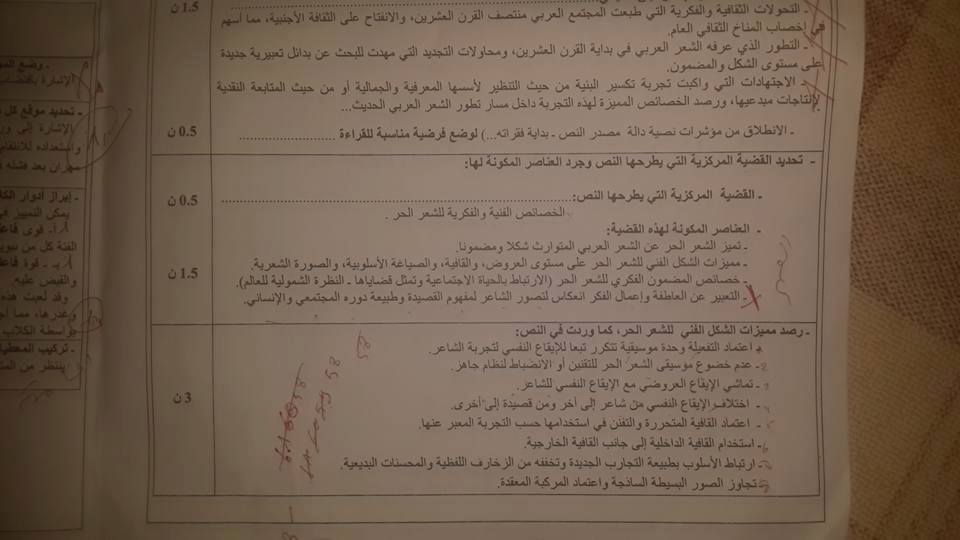 - التحولات الثقافية والفكرية التي طبعت المجتمع العربي منتصف القرن العشرين، والانفتاح على الثقافة الأجنبية، مما أسهم
في إخصاب المناخ الثقافي العام.
1.5 ن
- التطور الذي عرفه الشعر العربي في بداية القرن العشرين، ومحاولات التجديد التي مهدت للبحث عن بدائل تعبيرية جديدة
على مستوى الشكل والمضمون.
- الاجتهادات التي واكبت تجربة تكسير البنية من حيث التنظير لأسسها المعرفية والجمالية أو من حيث المتابعة النقدية
لإنتاجات مبدعيها، ورصد الخصائص المميزة لهذه التجربة داخل مسار تطور الشعر العربي الحديث...
- الانطلاق من مؤشرات نصية دالة مصدر النص - بداية فقراته...) لوضع فرضية مناسبة للقراءة ................ 0.5 ن
- تحديد القضية المركزية التي يطرحها النص وجرد العناصر المكونة لها:
- القضية المركزية التي يطرحها النص: ................ 0.5 ن
الخصائص الفنية والفكرية للشعر الحر .
- العناصر المكونة لهذه القضية:
- تميز الشعر الحر عن الشعر العربي المتوارث شكلا ومضمونا.
- مميزات الشكل الفني للشعر الحر على مستوى العروض، والقافية، والصياغة الأسلوبية، والصورة الشعرية. 1.5 ن
- خصائص المضمون الفكري للشعر الحر (الارتباط بالحياة الاجتماعية وتمثل قضاياها - النظرة الشمولية للعالم).
- التعبير عن العاطفة وإعمال الفكر انعكاس لتصور الشاعر لمفهوم القصيدة وطبيعة دوره المجتمعي والإنساني.
- رصد مميزات الشكل الفني للشعر الحر، كما وردت في النص:
- اعتماد التفعيلة وحدة موسيقية تتكرر تبعا للإيقاع النفسي لتجربة الشاعر.
- عدم خضوع موسيقى الشعر الحر للتقنين أو الانضباط لنظام جاهز.
- تماشي الإيقاع العروضي مع الإيقاع النفسي للشاعر.
- اختلاف الإيقاع النفسي من شاعر إلى آخر ومن قصيدة إلى أخرى. 3 ن
- اعتماد القافية المتحررة والتفنن في استخدامها حسب التجربة المعبر عنها.
- استخدام القافية الداخلية إلى جانب القافية الخارجية.
- ارتباط الأسلوب بطبيعة التجارب الجديدة وتخففه من الزخارف اللفظية والمحسنات البديعية.
- تجاوز الصور البسيطة الساذجة واعتماد المركبة المعقدة.
- تحديد موقع كل
واستعداده للانتقام
سهران بعد فشله
- إبراز أدوار
يمكن التمييز
والقبض عليه
وقد لعبت هذه
بواسطة الكلاب
- تركيب المعطيات